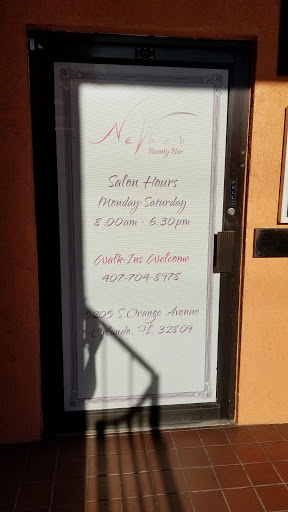 Beauty Bar
Salon Hours
Monday-Saturday
8:00am - 6:30pm
Walk-Ins Welcome
407-704-8978
5205 S.Orange Avenue
Orlando, FL 32809